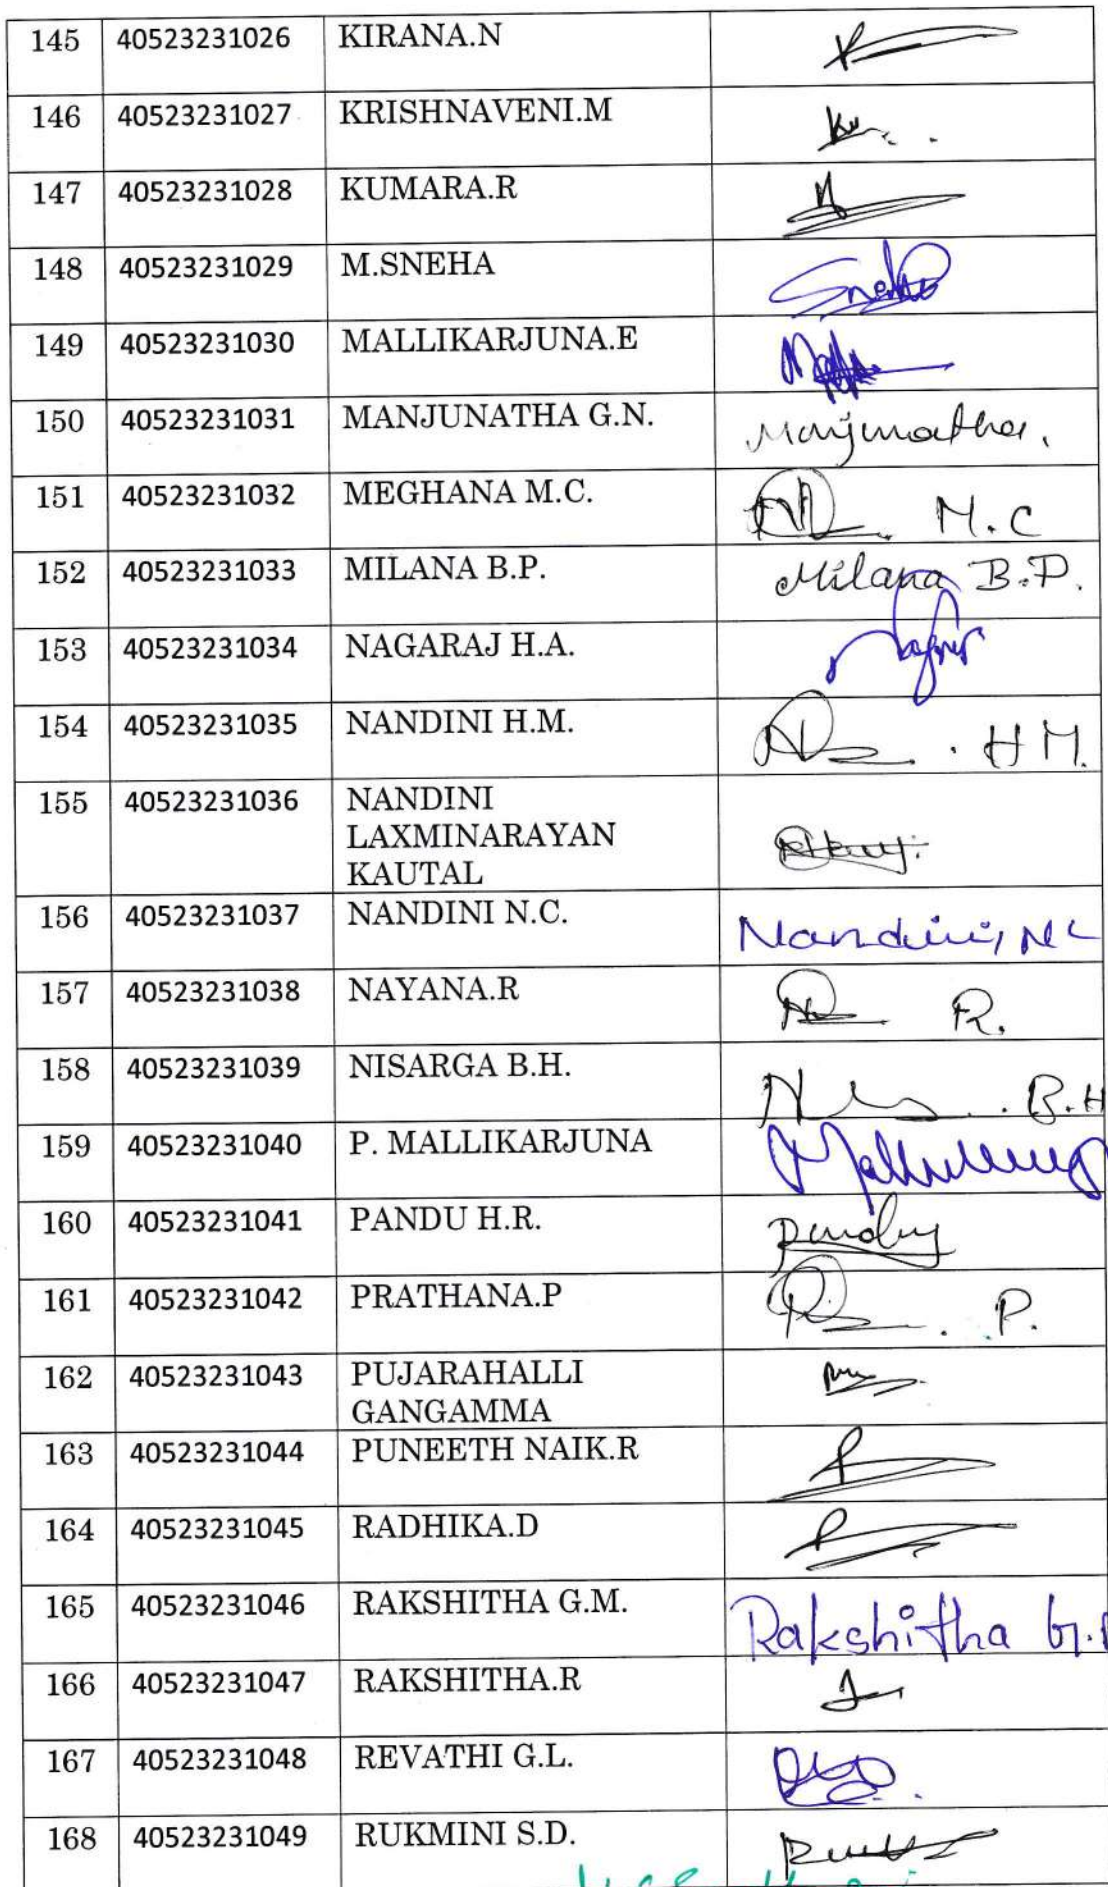 145 40523231026 KIRANA.N
146 40523231027 KRISHNAVENI.M
147 40523231028 KUMARA.R
148 40523231029 M.SNEHA Sneha
149 40523231030 MALLIKARJUNA.E
150 40523231031 MANJUNATHA G.N. Manjunatha.
151 40523231032 MEGHANA M.C. M.C
152 40523231033 MILANA B.P. Milana B.P.
153 40523231034 NAGARAJ H.A.
154 40523231035 NANDINI H.M. . H M.
155 40523231036 NANDINI
LAXMINARAYAN
KAUTAL
156 40523231037 NANDINI N.C. Nandini, NC
157 40523231038 NAYANA.R R.
158 40523231039 NISARGA B.H. B.H
159 40523231040 P. MALLIKARJUNA
160 40523231041 PANDU H.R.
161 40523231042 PRATHANA.P P.
162 40523231043 PUJARAHALLI
GANGAMMA
163 40523231044 PUNEETH NAIK.R
164 40523231045 RADHIKA.D
165 40523231046 RAKSHITHA G.M. Rakshitha G.
166 40523231047 RAKSHITHA.R
167 40523231048 REVATHI G.L.
168 40523231049 RUKMINI S.D.